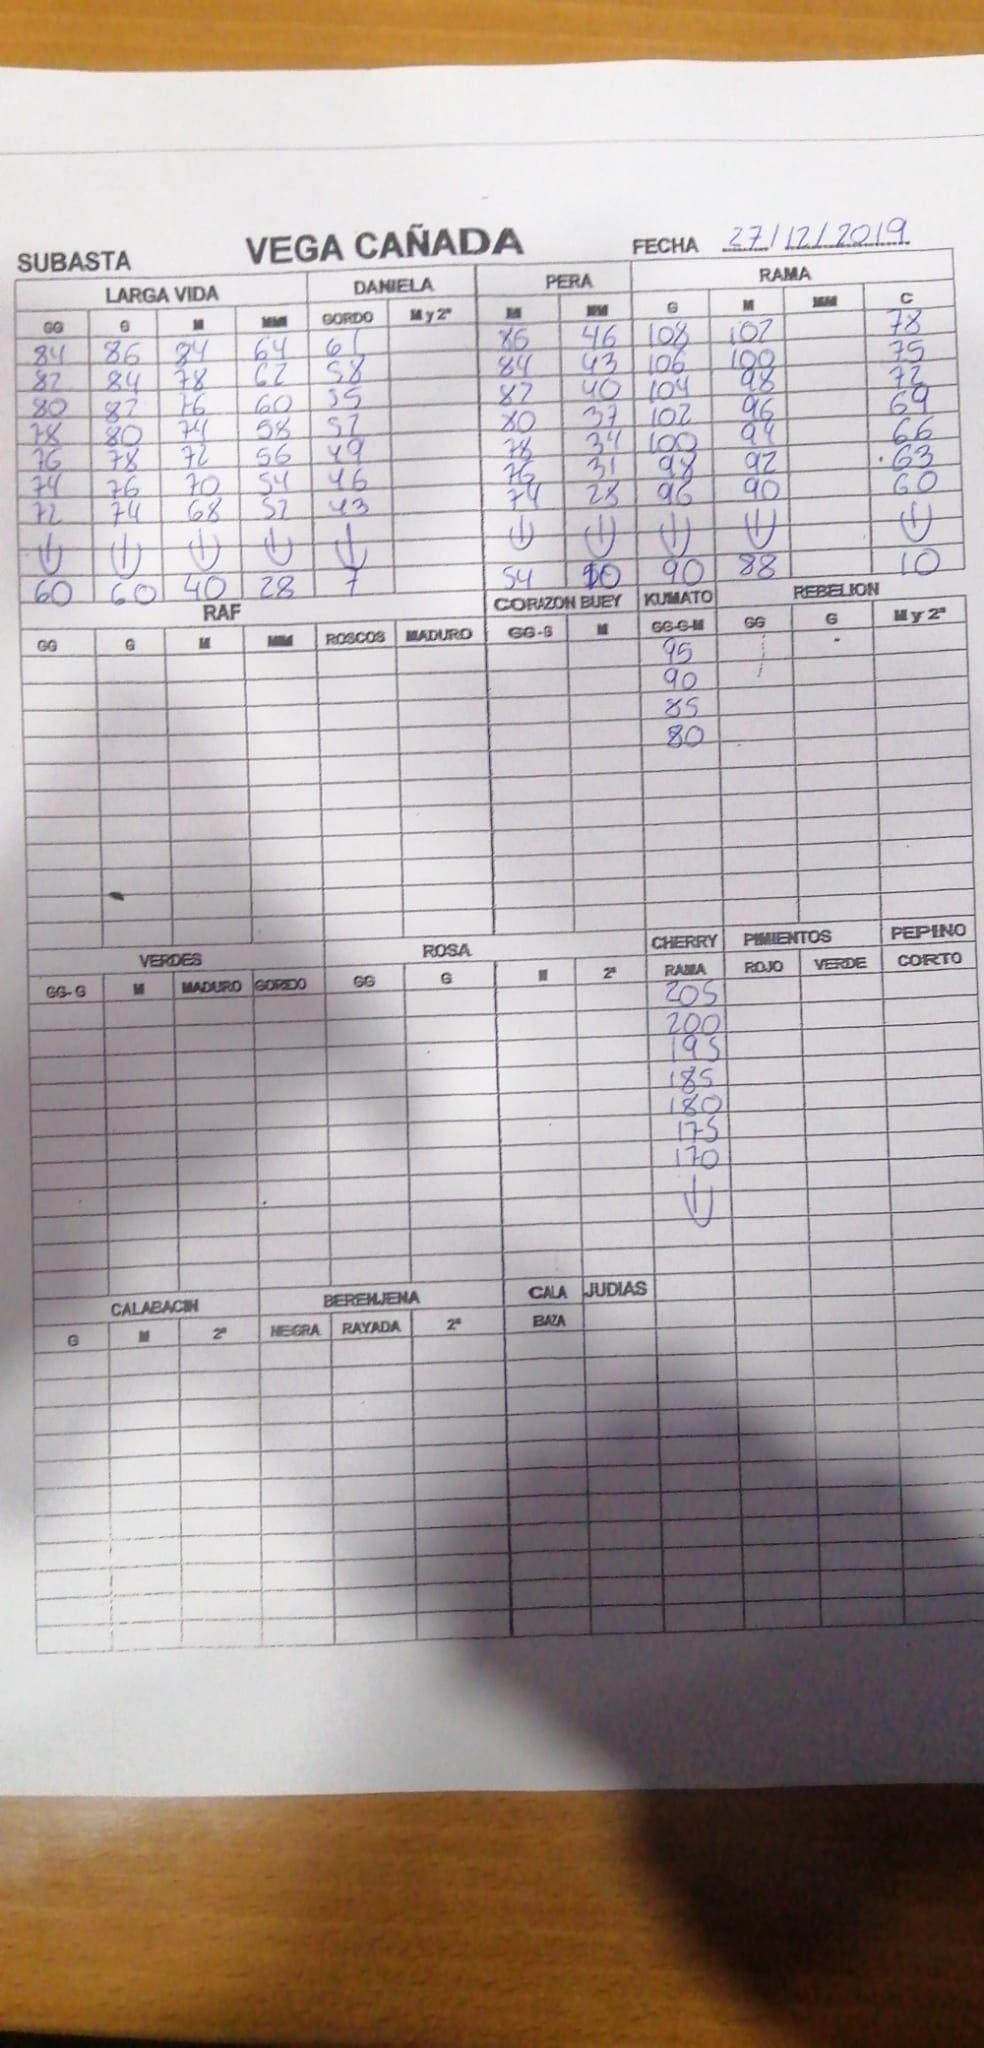 SUBASTA VEGA CAÑADA FECHA 27/12/2019
LARGA VIDA DANIELA PERA RAMA
GG G M MM GORDO M y 2ª M MM G M MM C
84 86 84 64 61 86 46 108 102 78
82 84 78 62 58 84 43 106 100 75
80 82 76 60 55 82 40 104 98 72
78 80 74 58 52 80 37 102 96 69
76 78 72 56 49 78 34 100 94 66
74 76 70 54 46 76 31 98 92 63
72 74 68 52 43 74 28 96 90 60
60 60 40 28 7 54 10 90 88 10
RAF CORAZON BUEY KUMATO REBELION
GG G M MM ROSCOS MADURO GG-G M GG-G-M GG G M y 2ª
95
90
85
80
VERDES ROSA CHERRY PIMIENTOS PEPINO
GG-G M MADURO GORDO GG G M 2ª RAMA ROJO VERDE CORTO
205
200
195
185
180
175
170
CALABACIN BERENJENA CALA JUDIAS
G M 2ª NEGRA RAYADA 2ª BAZA